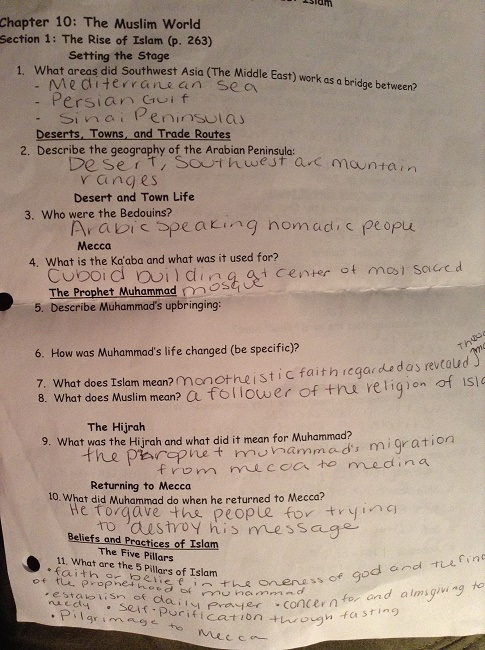 Islam
Chapter 10: The Muslim World
Section 1: The Rise of Islam (p. 263)
Setting the Stage
1. What areas did Southwest Asia (The Middle East) work as a bridge between?
- Mediterranean Sea
- Persian Gulf
- Sinai Peninsulas
Deserts, Towns, and Trade Routes
2. Describe the geography of the Arabian Peninsula:
Desert, Southwest arc mountain
ranges
Desert and Town Life
3. Who were the Bedouins?
Arabic speaking nomadic people
Mecca
4. What is the Ka'aba and what was it used for?
Cuboid building at center of most sacred
mosque
The Prophet Muhammad
5. Describe Muhammad's upbringing:
6. How was Muhammad's life changed (be specific)?
7. What does Islam mean? monotheistic faith regarded as revealed
8. What does Muslim mean? a follower of the religion of Isla
The Hijrah
9. What was the Hijrah and what did it mean for Muhammad?
the prophet muhammad's migration
from mecca to medina
Returning to Mecca
10. What did Muhammad do when he returned to Mecca?
He forgave the people for trying
to destroy his message
Beliefs and Practices of Islam
The Five Pillars
11. What are the 5 Pillars of Islam
• faith or belief in the oneness of god and the fina
of the prophethood of muhammad
• establishm of daily prayer • concern for and almsgiving to
needy • self-purification through fasting
• Pilgrimage to Mecca